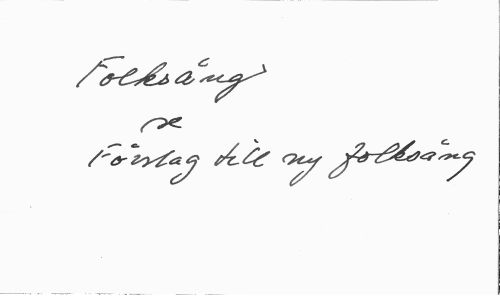 Folksång
se
Förslag till ny folksång